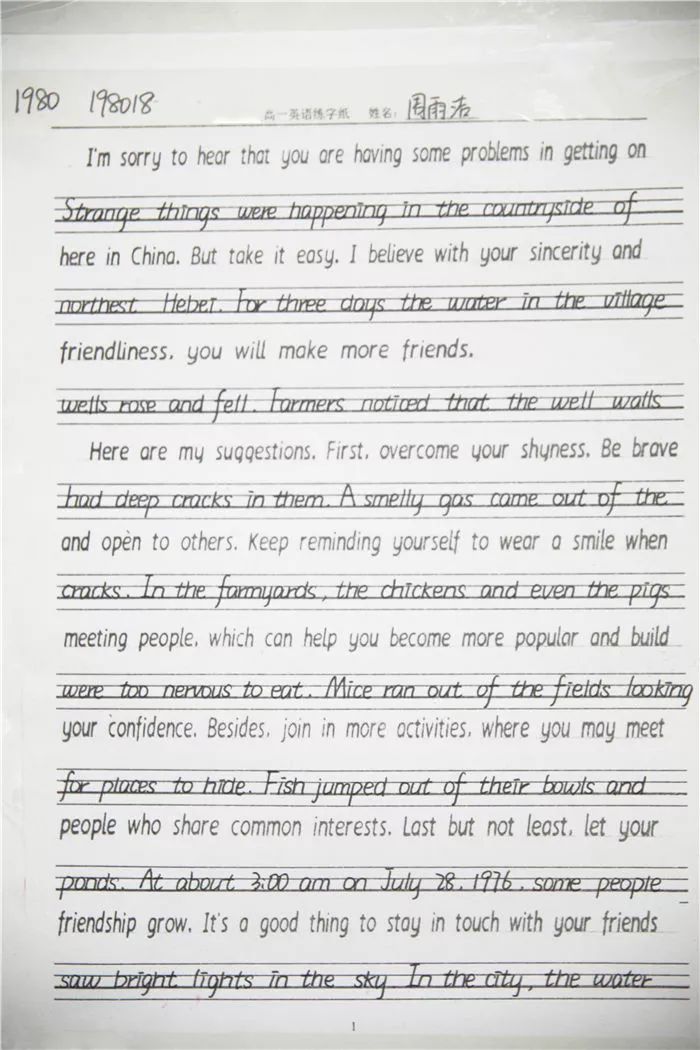 1980 198018
高一英语练字纸 姓名: 周雨洁
I'm sorry to hear that you are having some problems in getting on
Strange things were happening in the countryside of
here in China. But take it easy. I believe with your sincerity and
northest Hebei. For three days the water in the village
friendliness, you will make more friends.
wells rose and fell. Farmers noticed that the well walls
Here are my suggestions. First, overcome your shyness. Be brave
had deep cracks in them. A smelly gas came out of the
and open to others. Keep reminding yourself to wear a smile when
cracks. In the farmyards, the chickens and even the pigs
meeting people, which can help you become more popular and build
were too nervous to eat. Mice ran out of the fields looking
your confidence. Besides, join in more activities, where you may meet
for places to hide. Fish jumped out of their bowls and
people who share common interests. Last but not least, let your
ponds. At about 3:00 am on July 28, 1976, some people
friendship grow. It's a good thing to stay in touch with your friends
saw bright lights in the sky. In the city, the water
1